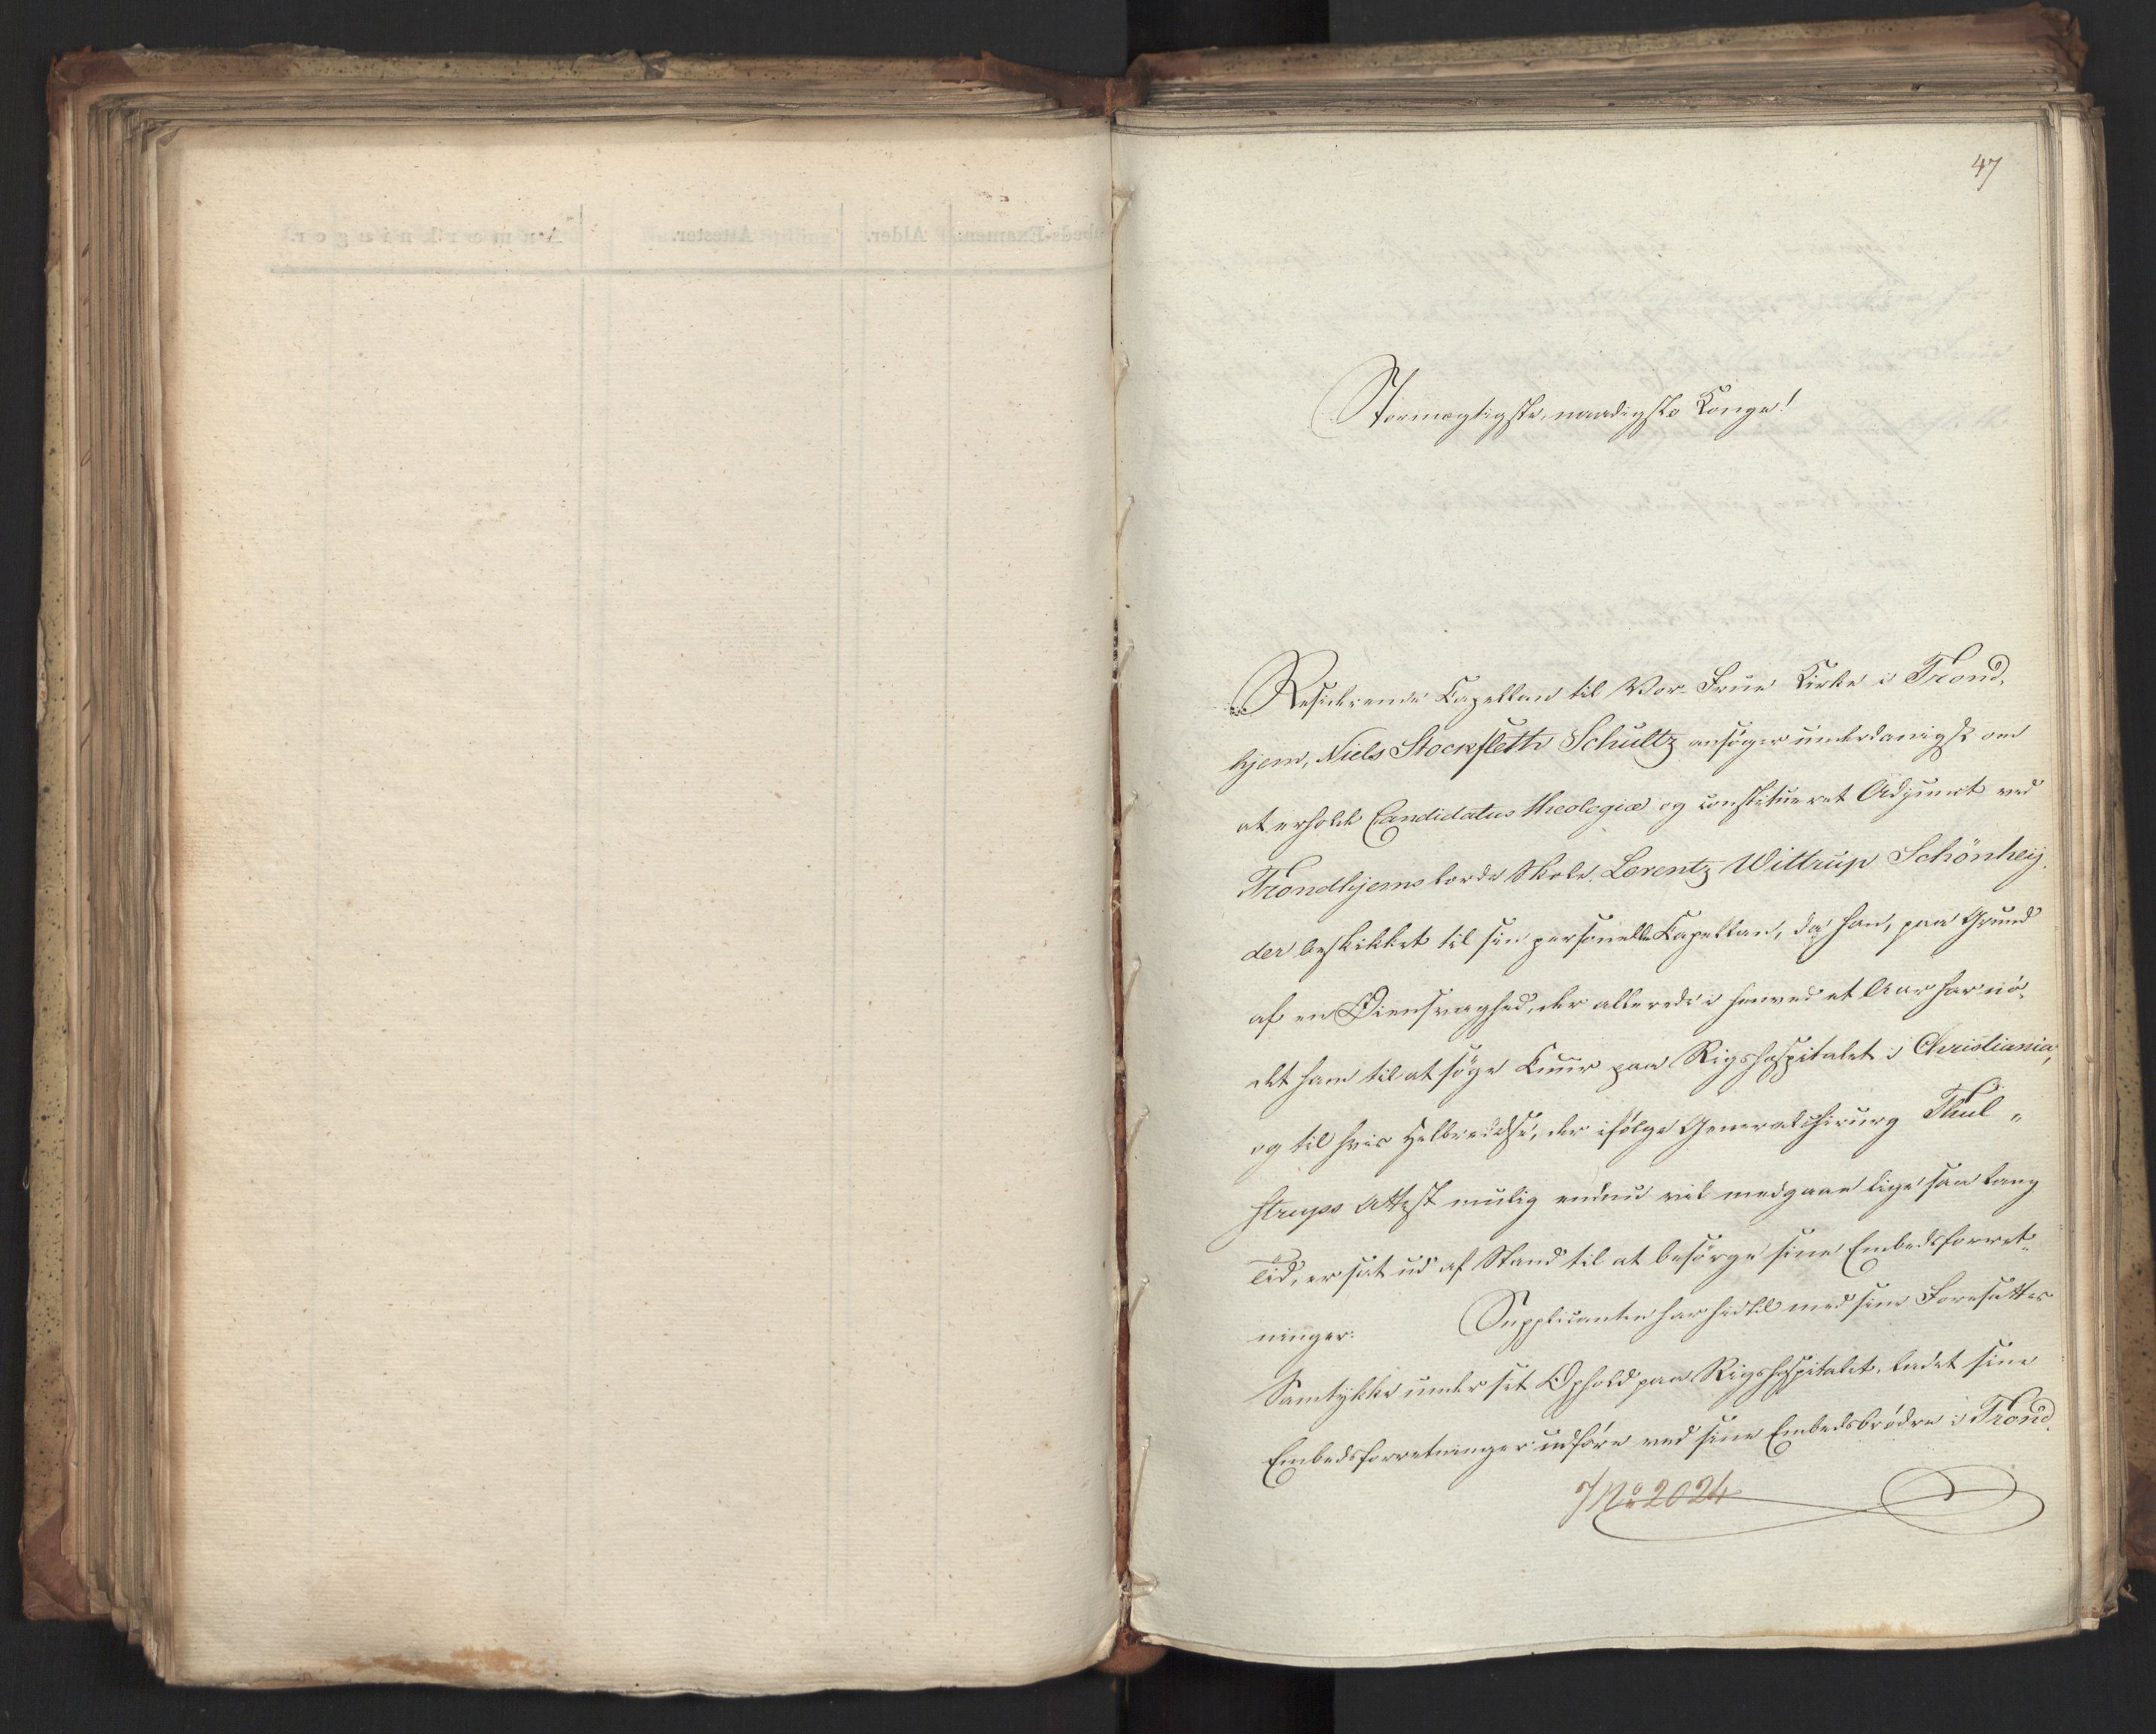 47
Stormægtigste, naadigste Konge!
Residerende Capellan til Vor Frue Kirke i Trond-
hjem, Niels Stockfleth Schultz ansøger underdanigst om
at erholde Candidatus theologiæ og constitueret Adjunct ved
Trondhjems lærde Skole, Lorentz Wittrup Schönhey-
der beskikket til sin personelle Capellan, da han, paa Grund
af en Øiensvaghed, der allerede i henved et Aar har nö-
det ham til at søge Cuur paa Rigshospitalet i Christiania,
og til hvis Helbredelse, der ifølge Generalchirurg Thul-
strups Attest mulig endnu vil medgaae lige saa lang
Tid, er sat ud af Stand til at besørge sine Embedsforret-
ninger. Supplicanten har hidtil med sine Foresattes
Samtykke under sit Ophold paa Rigshospitalet, ladet sine
Embedsforretninger udføre ved sine Embedsbrødre i Trond-
No 2024